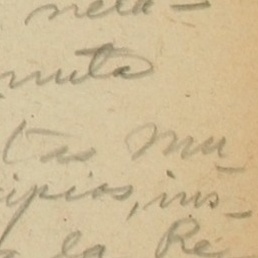 nera-
muta
tas Mu-
ipios, ins-
a la Re-